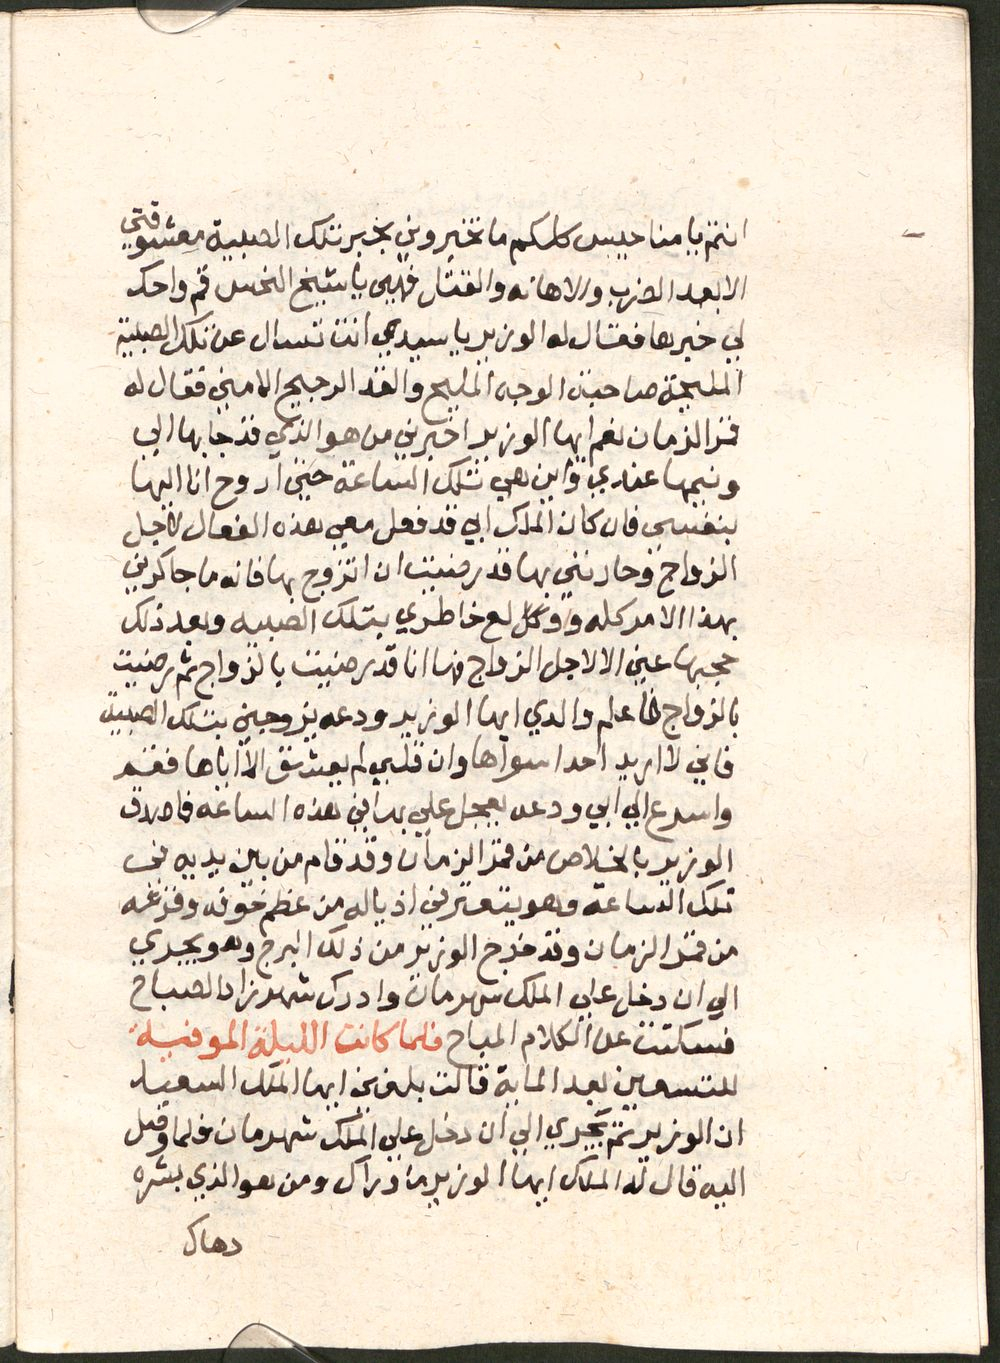 انتم يا مناحيس كلكم ما تخبروني بخبر تلك الصبية معشوقتي
الا بعد الضرب والاهانه والقتال فهيى يا شيخ النحس قم واحك
لي خبرها فقال له الوزير يا سيدي انت تسال عن تلك الصبية
المليحة صاحبة الوجه المليح والقد الرجيح فقال له
قمر الزمان نعم ايها الوزير اخبرني من هو الذي قد جابها الي
ونيمها عندي واين هي تلك الساعة حتى اروح انا اليها
بنفسي فان كان الملك ابي قد فعل معي هذه الفعال لاجل
الزواج وحاربني بها قد رضيت ان اتزوج بها فانه ما جاكرني
بهذا الامر كله وولع خاطري بتلك الصبيه وبعد ذلك
حجبها عني الا لاجل الزواج فها انا قد رضيت بالزواج ثم رضيت
بالزواج فاعلم والدي ايها الوزير ودعه يزوجني بتلك الصبية
فاني لا اريد احدا سواها وان قلبي لم يعشق الا اياها فقم
واسرع الي ابي ودعه يعجل علي بها في هذه الساعه فما صدق
الوزير بالخلاص من قمر الزمان وقد قام من بين يديه في
تلك الساعة وهو يتعثر في اذياله من عظم خوفه وفزعه
من قمر الزمان وقد خرج الوزير من ذلك البرج وهو يجري
الي ان دخل علي الملك شهرمان وادرك شهرزاد الصباح
فسكتت عن الكلام المباح فلما كانت الليلة الموفية
للتسعين بعد الماية قالت بلغني ايها الملك السعيد
ان الوزير تم يجري الي ان دخل علي الملك شهرمان فلما وصل
اليه قال له الملك ايها الوزير ما وراك ومن هو الذي بشره
دهاك